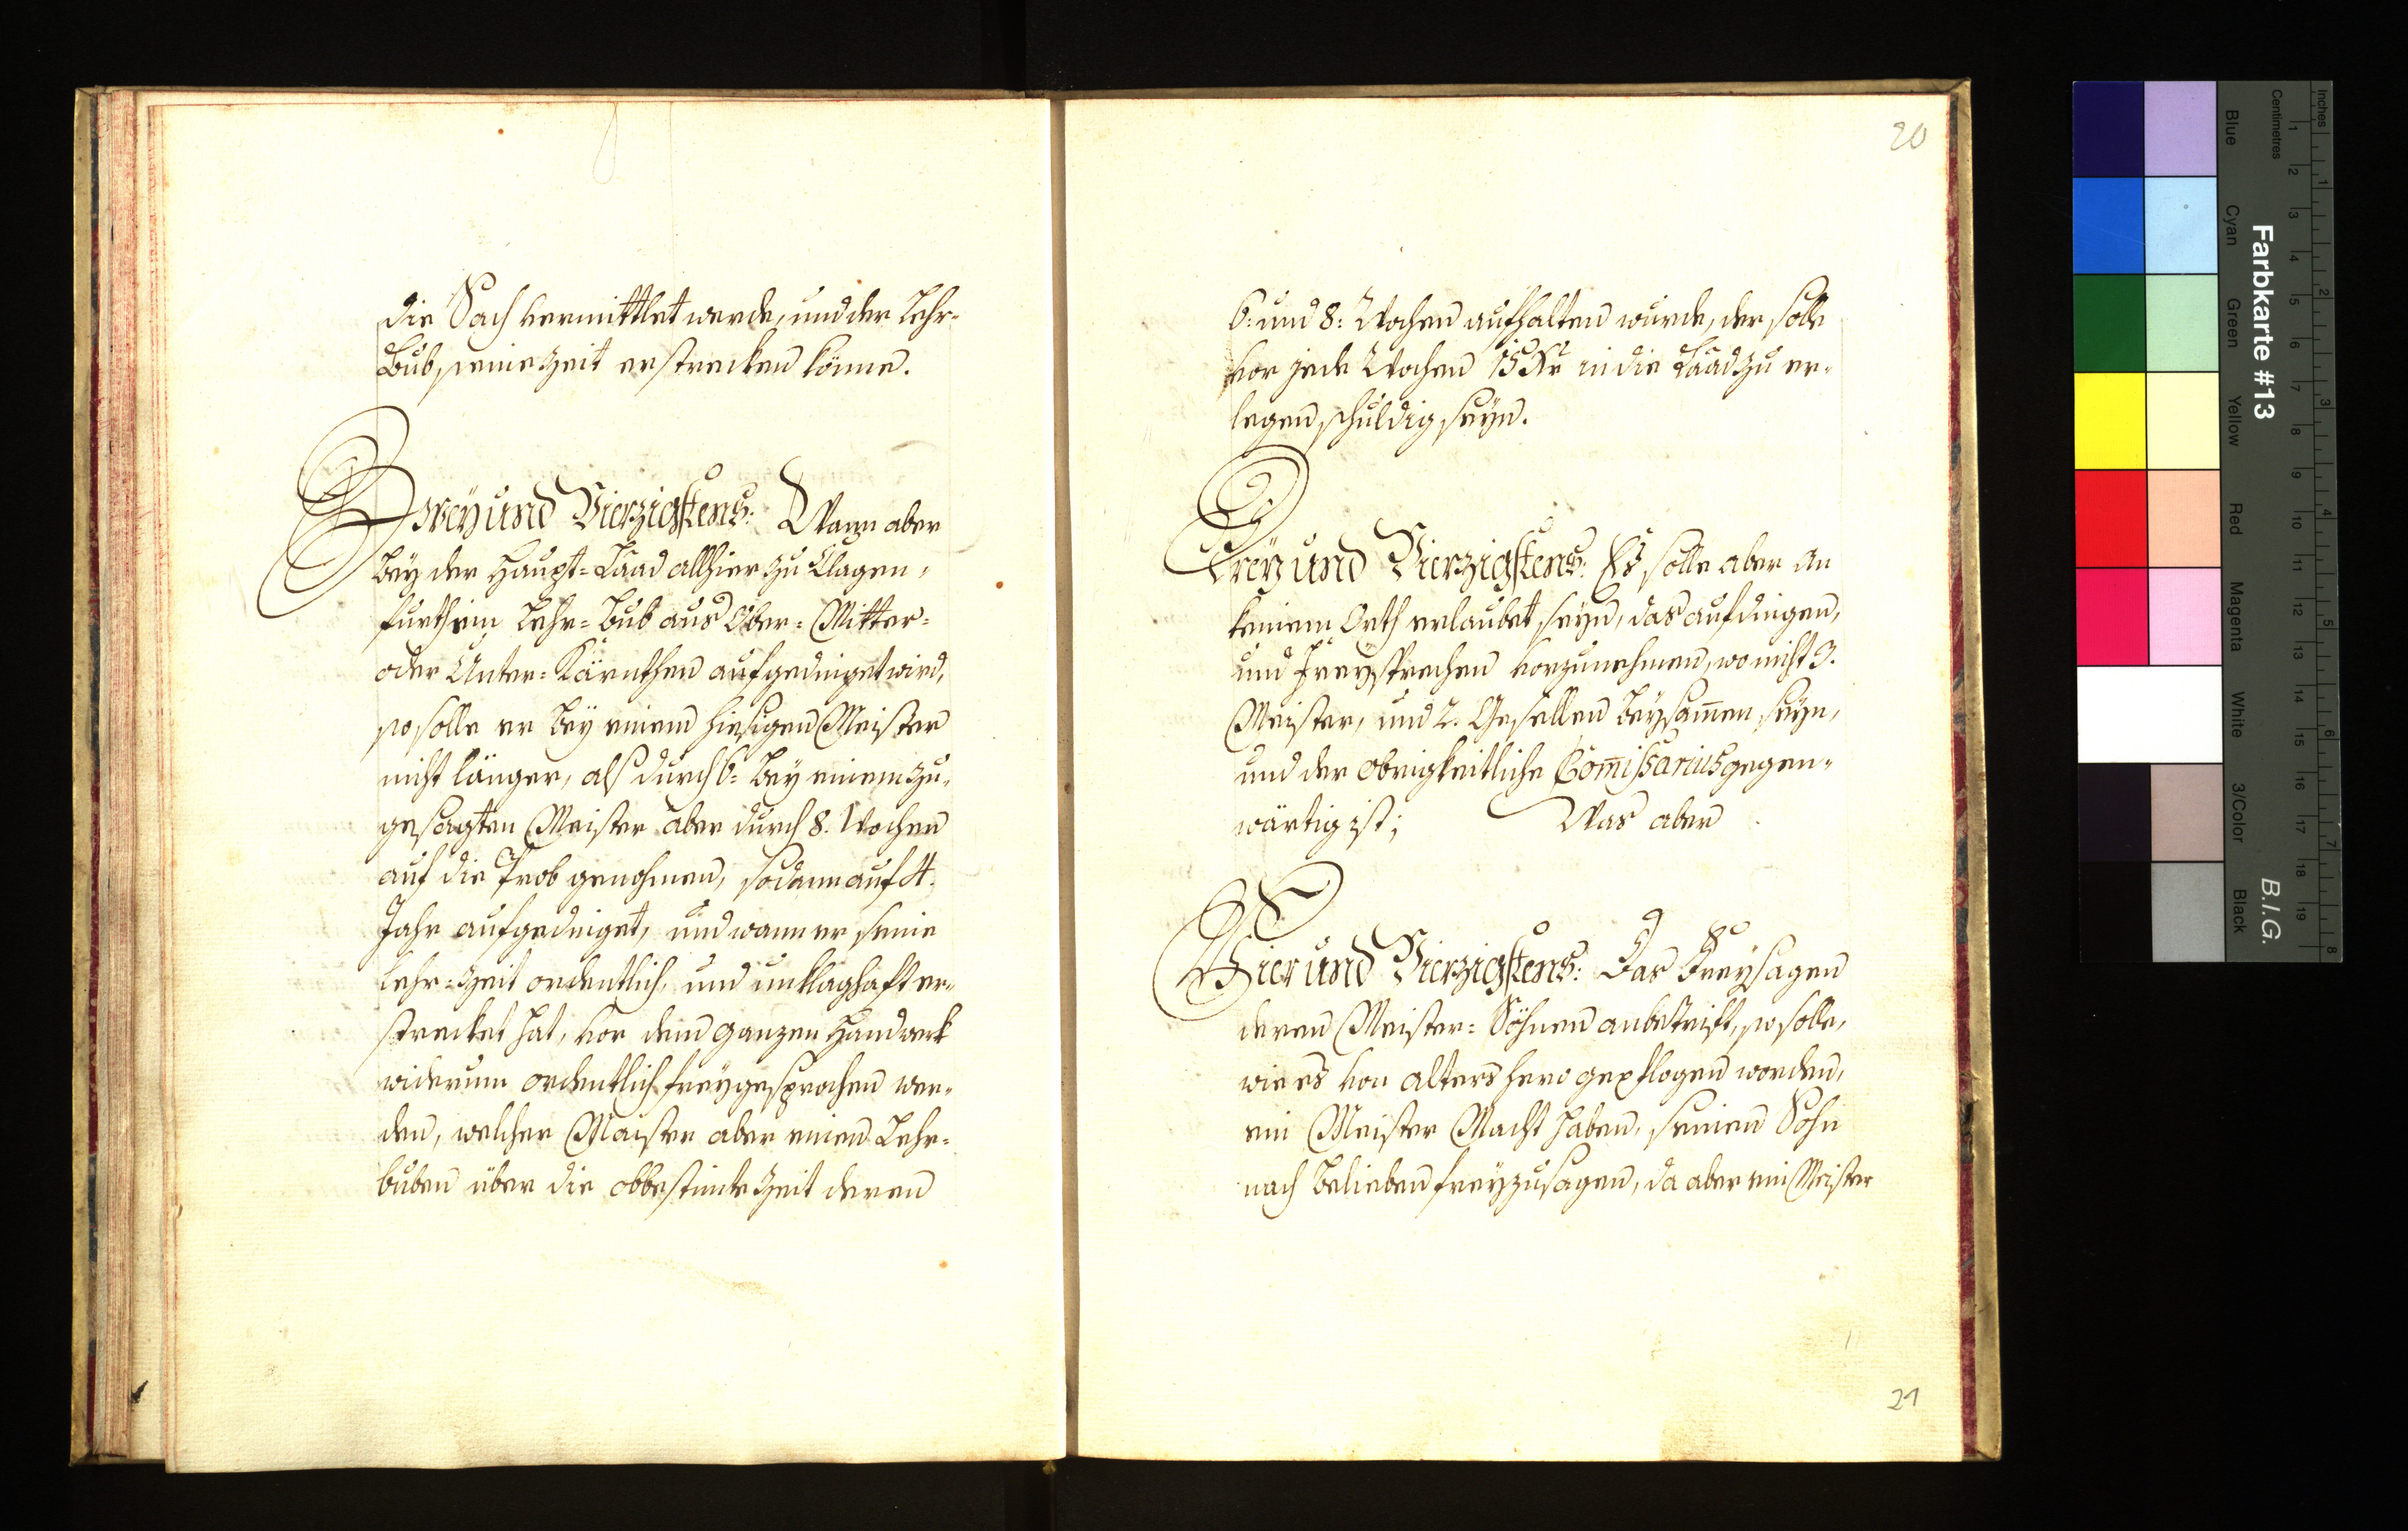 die Sach vermittlet werde, und der Lehr-
Bub seine Zeit erstrecken könne.
Zwey und Vierzigstens: Wann aber
bey der Haupt-Laad allhier zu Clagen-
furth ein Lehr-Bub aus Ober- Mitter-
oder Unter-Kärnthen aufgedinget wird,
so solle er bey einem hiesigen Meister
nicht länger, als durch 6: bey einem zu-
gesagten Meister aber durch 8. Wochen
auf die Prob genohmen, sodann auf 4.
Jahr aufgedinget, und wann er seine
Lehr-Zeit ordentlich, und unklaghaft er-
strecket hat, vor dem ganzen Handwerk
widerum ordentlich freygesprochen wer-
den, welcher Maister aber einen Lehr-
buben über die obbestimte Zeit deren
20
6: und 8: Wochen aufhalten wurde, der solle
vor jede Wochen 15 Kr in die Laad zu er-
legen schuldig seyn.
Drey und Vierzigstens: Es solle aber an
keinem Orth erlaubet seyn, das aufdingen,
und Freysprechen vorzunehmen, wo nicht 3.
Meister, und 2. Gesellen beysam̄en seyn,
und der obrigkeitliche Com̄issarius gegen-
wärtig ist; Was aber
Vier und Vierzigstens: Das Freysagen
deren Meister-Söhnen anbetrift, so solle,
wie es von alters hero gepflogen worden,
ein Meister Macht haben, seinen Sohn
nach Belieben freyzusagen, da aber ein Meister
21
Inches
Centimetres
Farbkarte #13
B.I.G.
Blue
Cyan
Green
Yellow
Red
Magenta
White
3/Color
Black
1 2 3 4 5 6 7 8 9 10 11 12 13 14 15 16 17 18 19
1 2 3 4 5 6 7 8